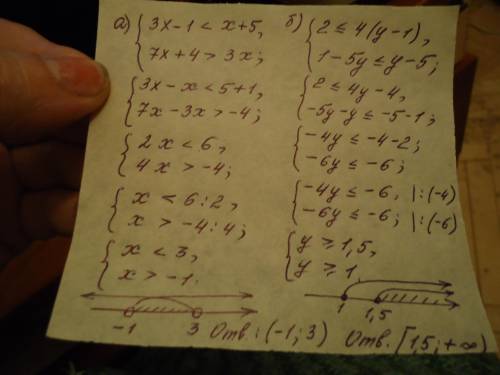 а) { 3x-1 < x+5,
7x+4 > 3x;
{ 3x-x < 5+1,
7x-3x > -4;
{ 2x < 6,
4x > -4;
{ x < 6:2,
x > -4:4;
{ x < 3,
x > -1.
-1 3
Отв.: (-1; 3)
б) { 2 ≤ 4(y-1),
1-5y ≤ y-5;
{ 2 ≤ 4y-4,
-5y-y ≤ -5-1;
{ -4y ≤ -4-2;
-6y ≤ -6;
{ -4y ≤ -6, |:(-4)
-6y ≤ -6; |:(-6)
{ y ≥ 1,5,
y ≥ 1
1 1,5
Отв. [1,5; +∞)